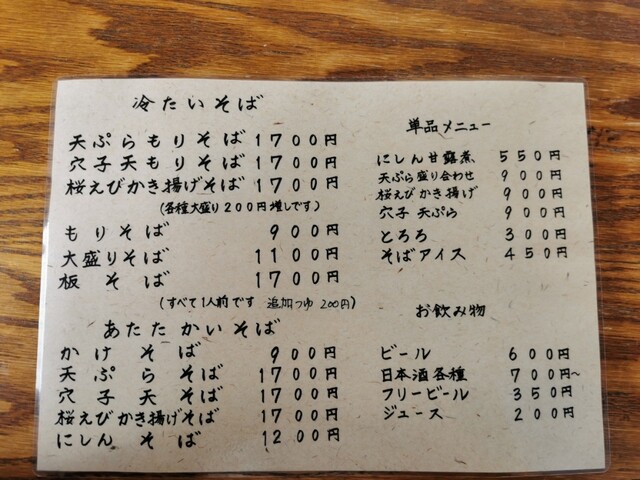 冷たいそば
天ぷらもりそば 1700円
穴子天もりそば 1700円
桜えびかき揚げそば 1700円
(各種大盛り200円増しです)
もりそば 900円
大盛りそば 1100円
板そば 1700円
(すべて1人前です 追加つゆ 200円)
あたたかいそば
かけそば 900円
天ぷらそば 1700円
穴子天そば 1700円
桜えびかき揚げそば 1700円
にしんそば 1200円
単品メニュー
にしん甘露煮 550円
天ぷら盛り合わせ 900円
桜えびかき揚げ 900円
穴子天ぷら 900円
とろろ 300円
そばアイス 450円
お飲み物
ビール 600円
日本酒各種 700円~
フリービール 350円
ジュース 200円